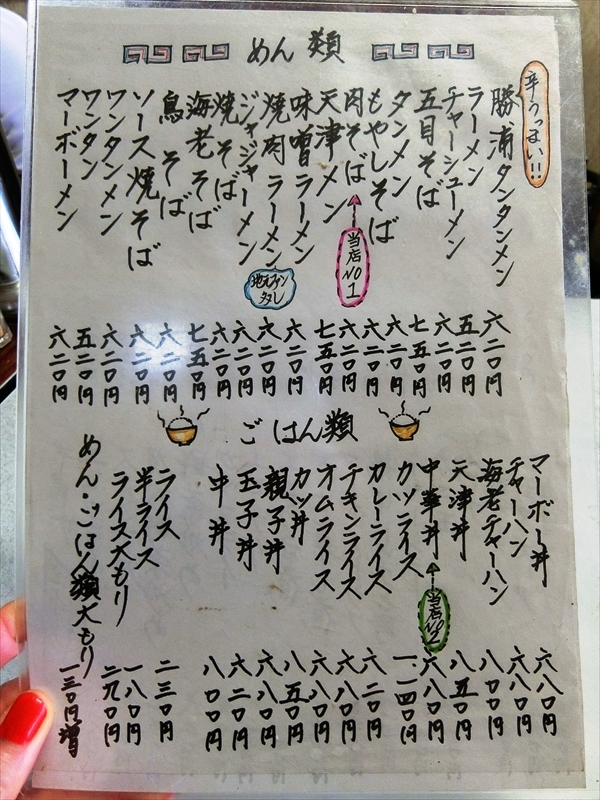 めん類
辛うっまい!!
勝浦タンタンメン 六二〇円
ラーメン 五二〇円
チャーシューメン 六二〇円
五目そば 七五〇円
タンメン 六二〇円
もやしそば 六二〇円
肉そば 六二〇円
当店NO1
天津メン 七五〇円
味噌ラーメン 六二〇円
焼肉ラーメン 六二〇円
地元ファン
多し
ジャジャーメン 六二〇円
焼そば 六二〇円
海老そば 七五〇円
鳥そば 六二〇円
ソース焼そば 六二〇円
ワンタンメン 六二〇円
ワンタン 五二〇円
マーボーメン 六二〇円
ごはん類
マーボー丼 六八〇円
チャーハン 六八〇円
海老チャーハン 八〇〇円
天津丼 八五〇円
中華丼 六八〇円
当店NO1
カツライス 一、一四〇円
カレーライス 六二〇円
チキンライス 六八〇円
オムライス 六八〇円
カツ丼 八五〇円
親子丼 六八〇円
玉子丼 六二〇円
中丼 八〇〇円
ライス 二三〇円
半ライス 一八〇円
ライス大もり 二九〇円
めん・ごはん類大もり 一三〇円増